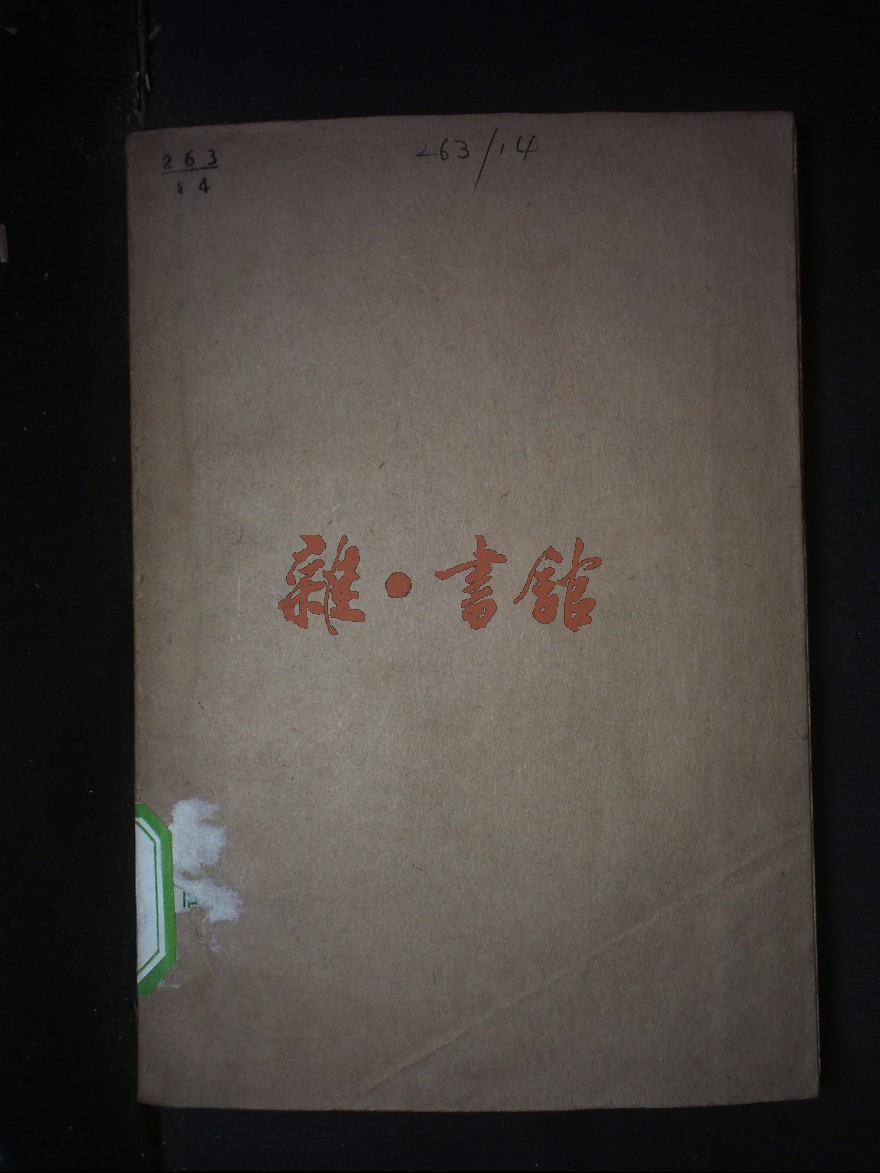 263
14
263/14
雜·書館